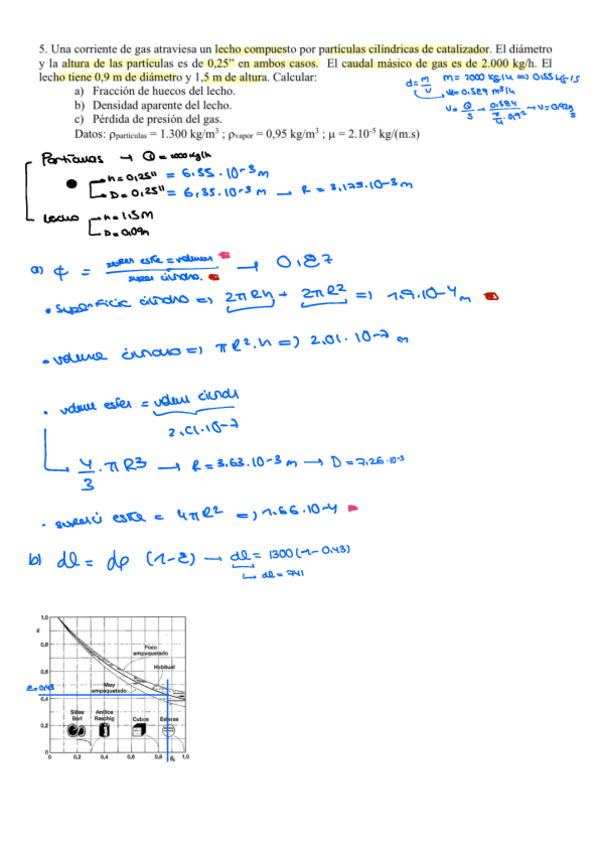 5. Una corriente de gas atraviesa un lecho compuesto por partículas cilíndricas de catalizador. El diámetro
y la altura de las partículas es de 0,25” en ambos casos. El caudal másico de gas es de 2.000 kg/h. El
lecho tiene 0,9 m de diámetro y 1,5 m de altura. Calcular:
a) Fracción de huecos del lecho.
b) Densidad aparente del lecho.
c) Pérdida de presión del gas.
Datos: ρpartículas = 1.300 kg/m³ ; ρvapor = 0,95 kg/m³ ; μ = 2.10⁻⁵ kg/(m.s)
d = m/v
m = 2000 kg/h => 0.55 kg/s
Partículas → Q = kg/h
h = 0,25" = 6.35 · 10-3 m
D = 0,25" = 6,35 · 10-3 m → R = 3,175·10-3 m
Lecho h = 1,5 M
a) ϕ = → 0.87
• Superficie cilindro => 2πRh + 2πR² => 1.9.10-4 m
• volume cilindro => πR².h => 2.01. 10-7 m
• volume esfer = volum cilindr
2.01.10-7
4/3 . πR3 → R = 3,63.10-3 m → D = 7.26·10-3
= 4πR² => 1.66.10-4
b) dl = dp (1-ε) → dl = 1300 (1-0.43)
dl = 741
1,0
ε
0,8
Poco
empaquetado
Habitual
0,6
Muy
empaquetado
ε=0.43
0,4
Sillas
Berl
Anillos
Raschig
Cubos
Esferas
0,2
0
0 0,2 0,4 0,6 0,8 1,0